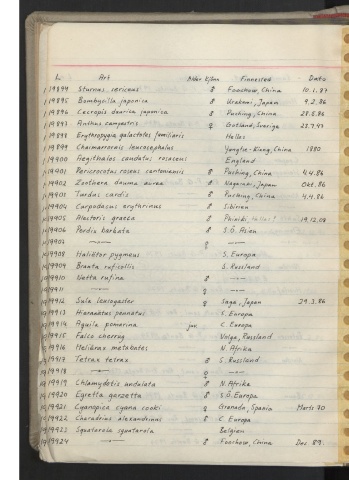 L. Art Alder Kjönn Finnested Dato
19894 Sturnus sericeus ♂ Foochow, China 10.1.87
19895 Bombycilla japonica ♂ Urakami, Japan 9.2.86
19896 Cecropis daurica japonica ♂ Fuching, China 28.5.86
19897 Anthus campestris ♀ Gotland, Sverige 23.7.47
19898 Erythropygia galactotes familiaris Hellas
19899 Chaimarrornis leucocephalus Yangtse-Kiang, China 1880
19900 Aegithalos caudatus rosaceus England
19901 Pericrocotus roseus cantonensis ♂ Fuching, China 4.4.86
19902 Zoothera dauma aurea ♂ Nagasaki, Japan Okt. 86
19903 Turdus cardis ♂ Fuching, China 4.4.86
19904 Carpodacus erythrinus ♂ Sibirien
19905 Alectoris graeca ♂ Hellas? 19.12.09
19906 Perdix barbata ♂ S.Ö. Asien
19907 —"— ♀
19908 Haliëtor pygmeus S. Europa
19909 Branta ruficollis S. Russland
19910 Netta rufina ♂ —"—
19911 —"— ♀ —"—
19912 Sula leucogaster ♀ Saga, Japan 29.3.86
19913 Hieraaëtus pennatus S. Europa
19914 Aquila pomarina juv. C. Europa
19915 Falco cherrug Volga, Russland
19916 Melierax metabates N. Afrika
19917 Tetrax tetrax ♂ S. Russland
19918 —"— ♀ —"—
19919 Chlamydotis undulata ♂ N. Afrika
19920 Egretta garzetta ♂ S.Ö. Europa
19921 Cyanopica cyana cooki ♀ Granada, Spania Marts 70
19922 Charadrius alexandrinus ♂ C. Europa
19923 Squatarola squatarola Belgien
19924 —"— ♂ Foochow, China Dec. 89.